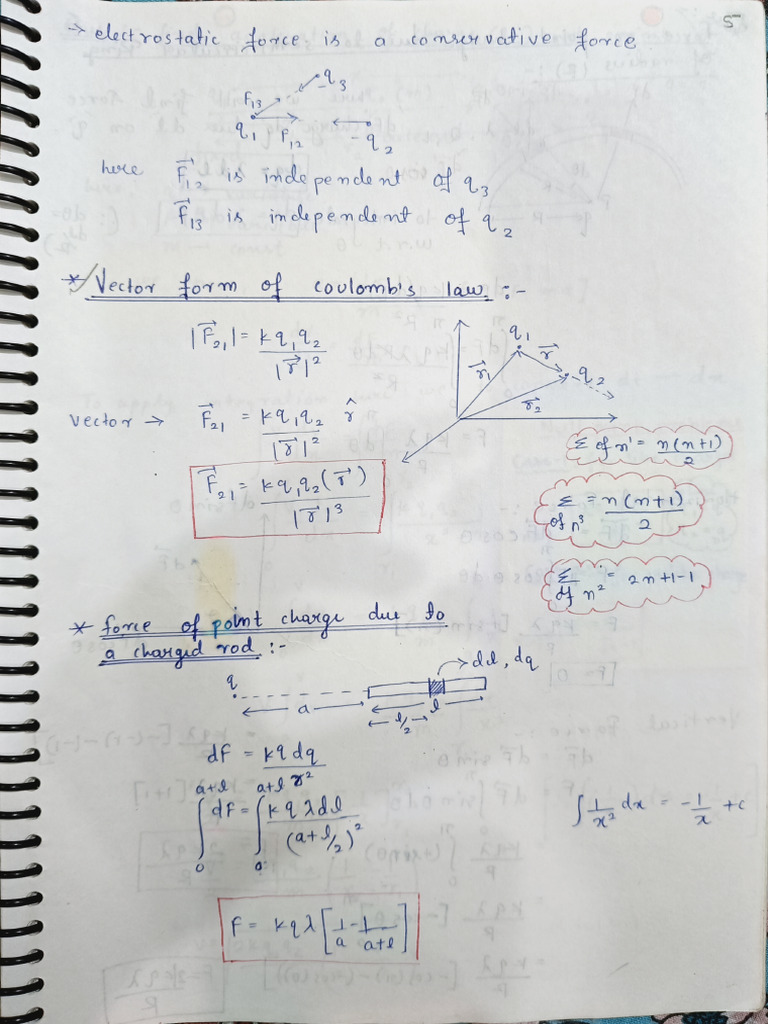 5
→ electrostatic force is a conservative force
F₁₃ -q₃
q₁ F₁₂ -q₂
here F⃗₁₂ is independent of q₃
F⃗₁₃ is independent of q₂
* Vector form of coulomb's law :-
|F⃗₂₁| = kq₁q₂ / |r⃗|²
q₁ r⃗ r⃗₁ q₂ r⃗₂
vector → F⃗₂₁ = kq₁q₂ / |r⃗|² r̂
Σ of n¹ = n(n+1) / 2
F⃗₂₁ = kq₁q₂(r⃗) / |r⃗|³
Σ of n³ = n(n+1) / 2
Σ of n² = 2n+1-1
* force of point charge due to
a charged rod :-
q a l l/2 → dl, dq
dF = kq dq / r²
∫₀^(a+l) dF = ∫ₐ^(a+l) kqλdl / (a+l/2)²
∫ 1/x² dx = -1/x + c
F = kqλ [1/a - 1/(a+l)]